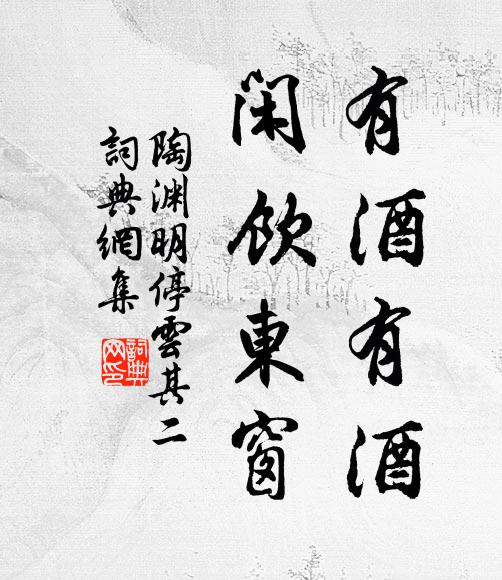 有酒有酒
閑飲東窗
陶渊明停雲其二
詞典網集
詞典网印